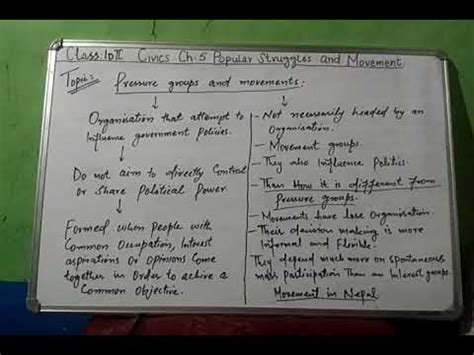 Class: 10th Civics Ch. 5 Popular Struggles and Movement
Topic: Pressure groups and movements:
Organisation that attempt to
Influence government Policies.
Do not aim to directly Control
or Share Political Power.
Formed when People with
Common Occupation, Interest
aspirations or opinions Come
together in Order to achive a
Common Objective.
- Not necessarily headed by an
Organisation.
- Movement groups.
- They also Influence Politics.
- How it is different from
Pressure groups.
- Movements have lose Organisation.
- Their decision making is more
Informal and Flexible.
They depend much more on spontaneous
mass participation Than an Interest groups.
Movement in Nepal